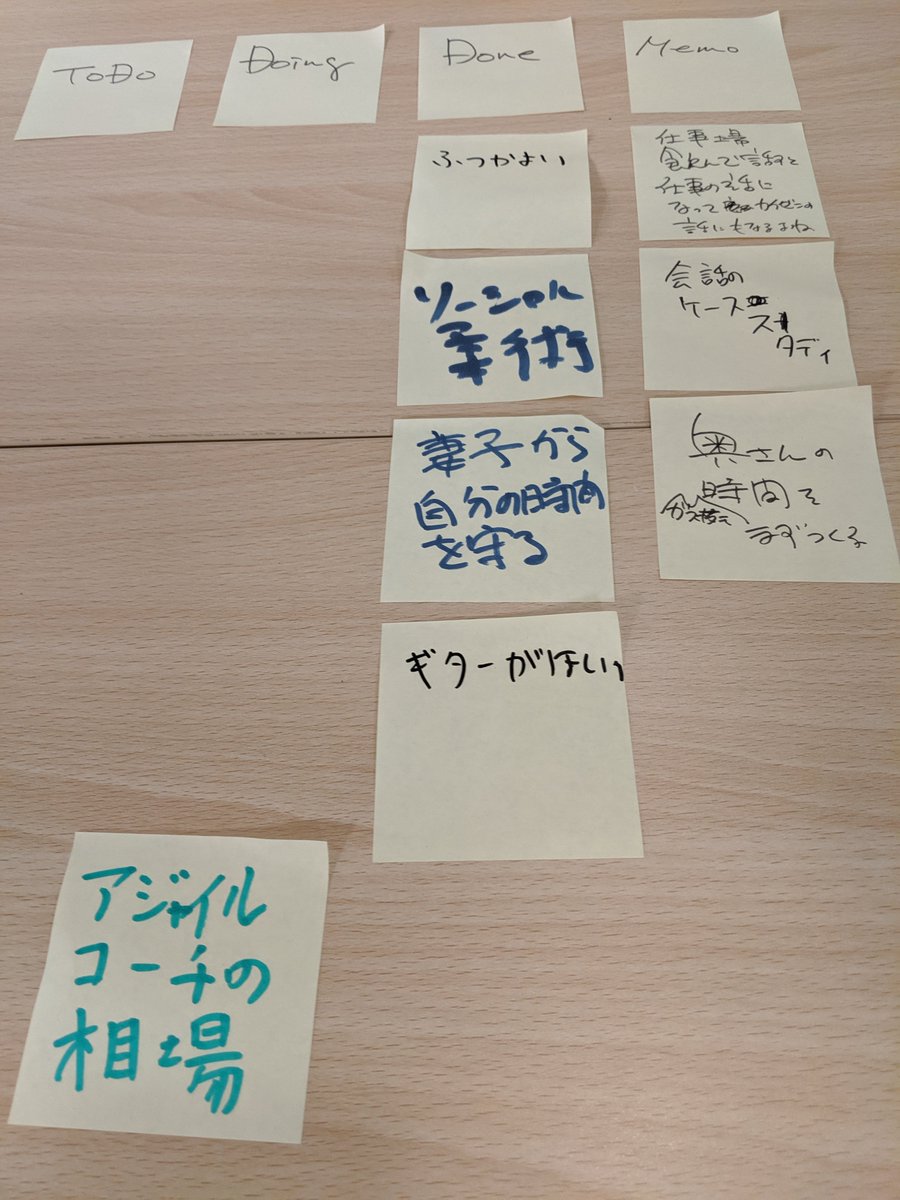 ToDo
Doing
Done
Memo
ふつかよい
ソーシャル
柔術
妻子から
自分の時間
を守る
ギターがほしい
アジャイル
コーチの
相場
仕事場
飲んで話すと
仕事の話に
なって カイゼンの
話にもなるよね
会話の
ケース
スタ
ディ
奥さんの
時間を
まずつくる